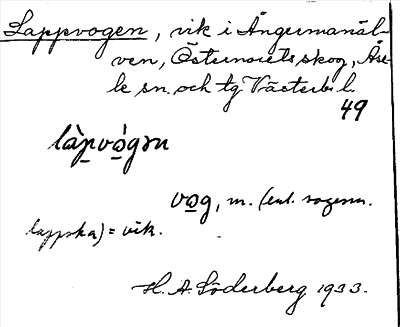 Lappvogen, vik i Ångermanäl-
ven, Östernorets skog, Åse-
le sn. och tg Västerb. l.
49
làpvógən
vog, m. (enl. sagesm.
lappska) = vik.
H. A. Söderberg 1933.